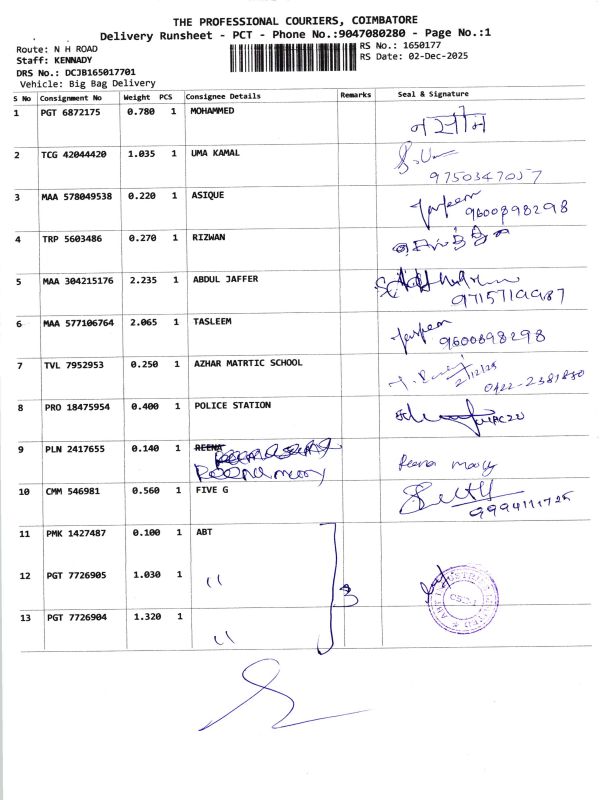 THE PROFESSIONAL COURIERS, COIMBATORE
Delivery Runsheet - PCT - Phone No.:9047080280 - Page No.:1
Route: N H ROAD
RS No.: 1650177
Staff: KENNADY
RS Date: 02-Dec-2025
DRS No.: DCJB165017701
Vehicle: Big Bag Delivery
S No Consignment No Weight PCS Consignee Details Remarks Seal & Signature
1 PGT 6872175 0.780 1 MOHAMMED
नसीम
2 TCG 42044420 1.035 1 UMA KAMAL
9750347057
3 MAA 578049538 0.220 1 ASIQUE
9600898298
4 TRP 5603486 0.270 1 RIZWAN
5 MAA 304215176 2.235 1 ABDUL JAFFER
6 MAA 577106764 2.065 1 TASLEEM
9600898298
7 TVL 7952953 0.250 1 AZHAR MATRTIC SCHOOL
2/12/25
0422-2381830
8 PRO 18475954 0.400 1 POLICE STATION
9 PLN 2417655 0.140 1 REENA
Reena moory
10 CMM 546981 0.560 1 FIVE G
11 PMK 1427487 0.100 1 ABT
12 PGT 7726905 1.030 1 "
3
13 PGT 7726904 1.320 1 "